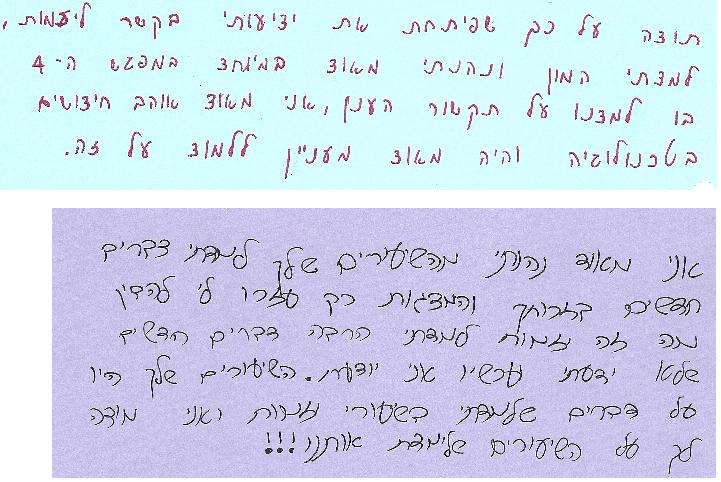 תודה על כך שפיתחת את ידיעותי בקשר ליזמות,
למדתי המון ונהנתי מאוד במיוחד במפגש ה-4
בו למדנו על תקשור הענן, אני מאוד אוהב חידושים
בטכנולוגיה והיה מאוד מעניין ללמוד על זה.
אני מאוד נהותי מהשיעורים שלך למדתי דברים
חדשים בזכותך והמצגות כך עזרו לי להבין
מה זה יזמות למדתי הרבה דברים חדשים
שלא ידעתי עכשיו אני יודעת. השיעורים שלך היו
על דברים שלמדתי בשיעורי יזמות ואני מודה
לך על השיעורים שלימדת אותנו!!!